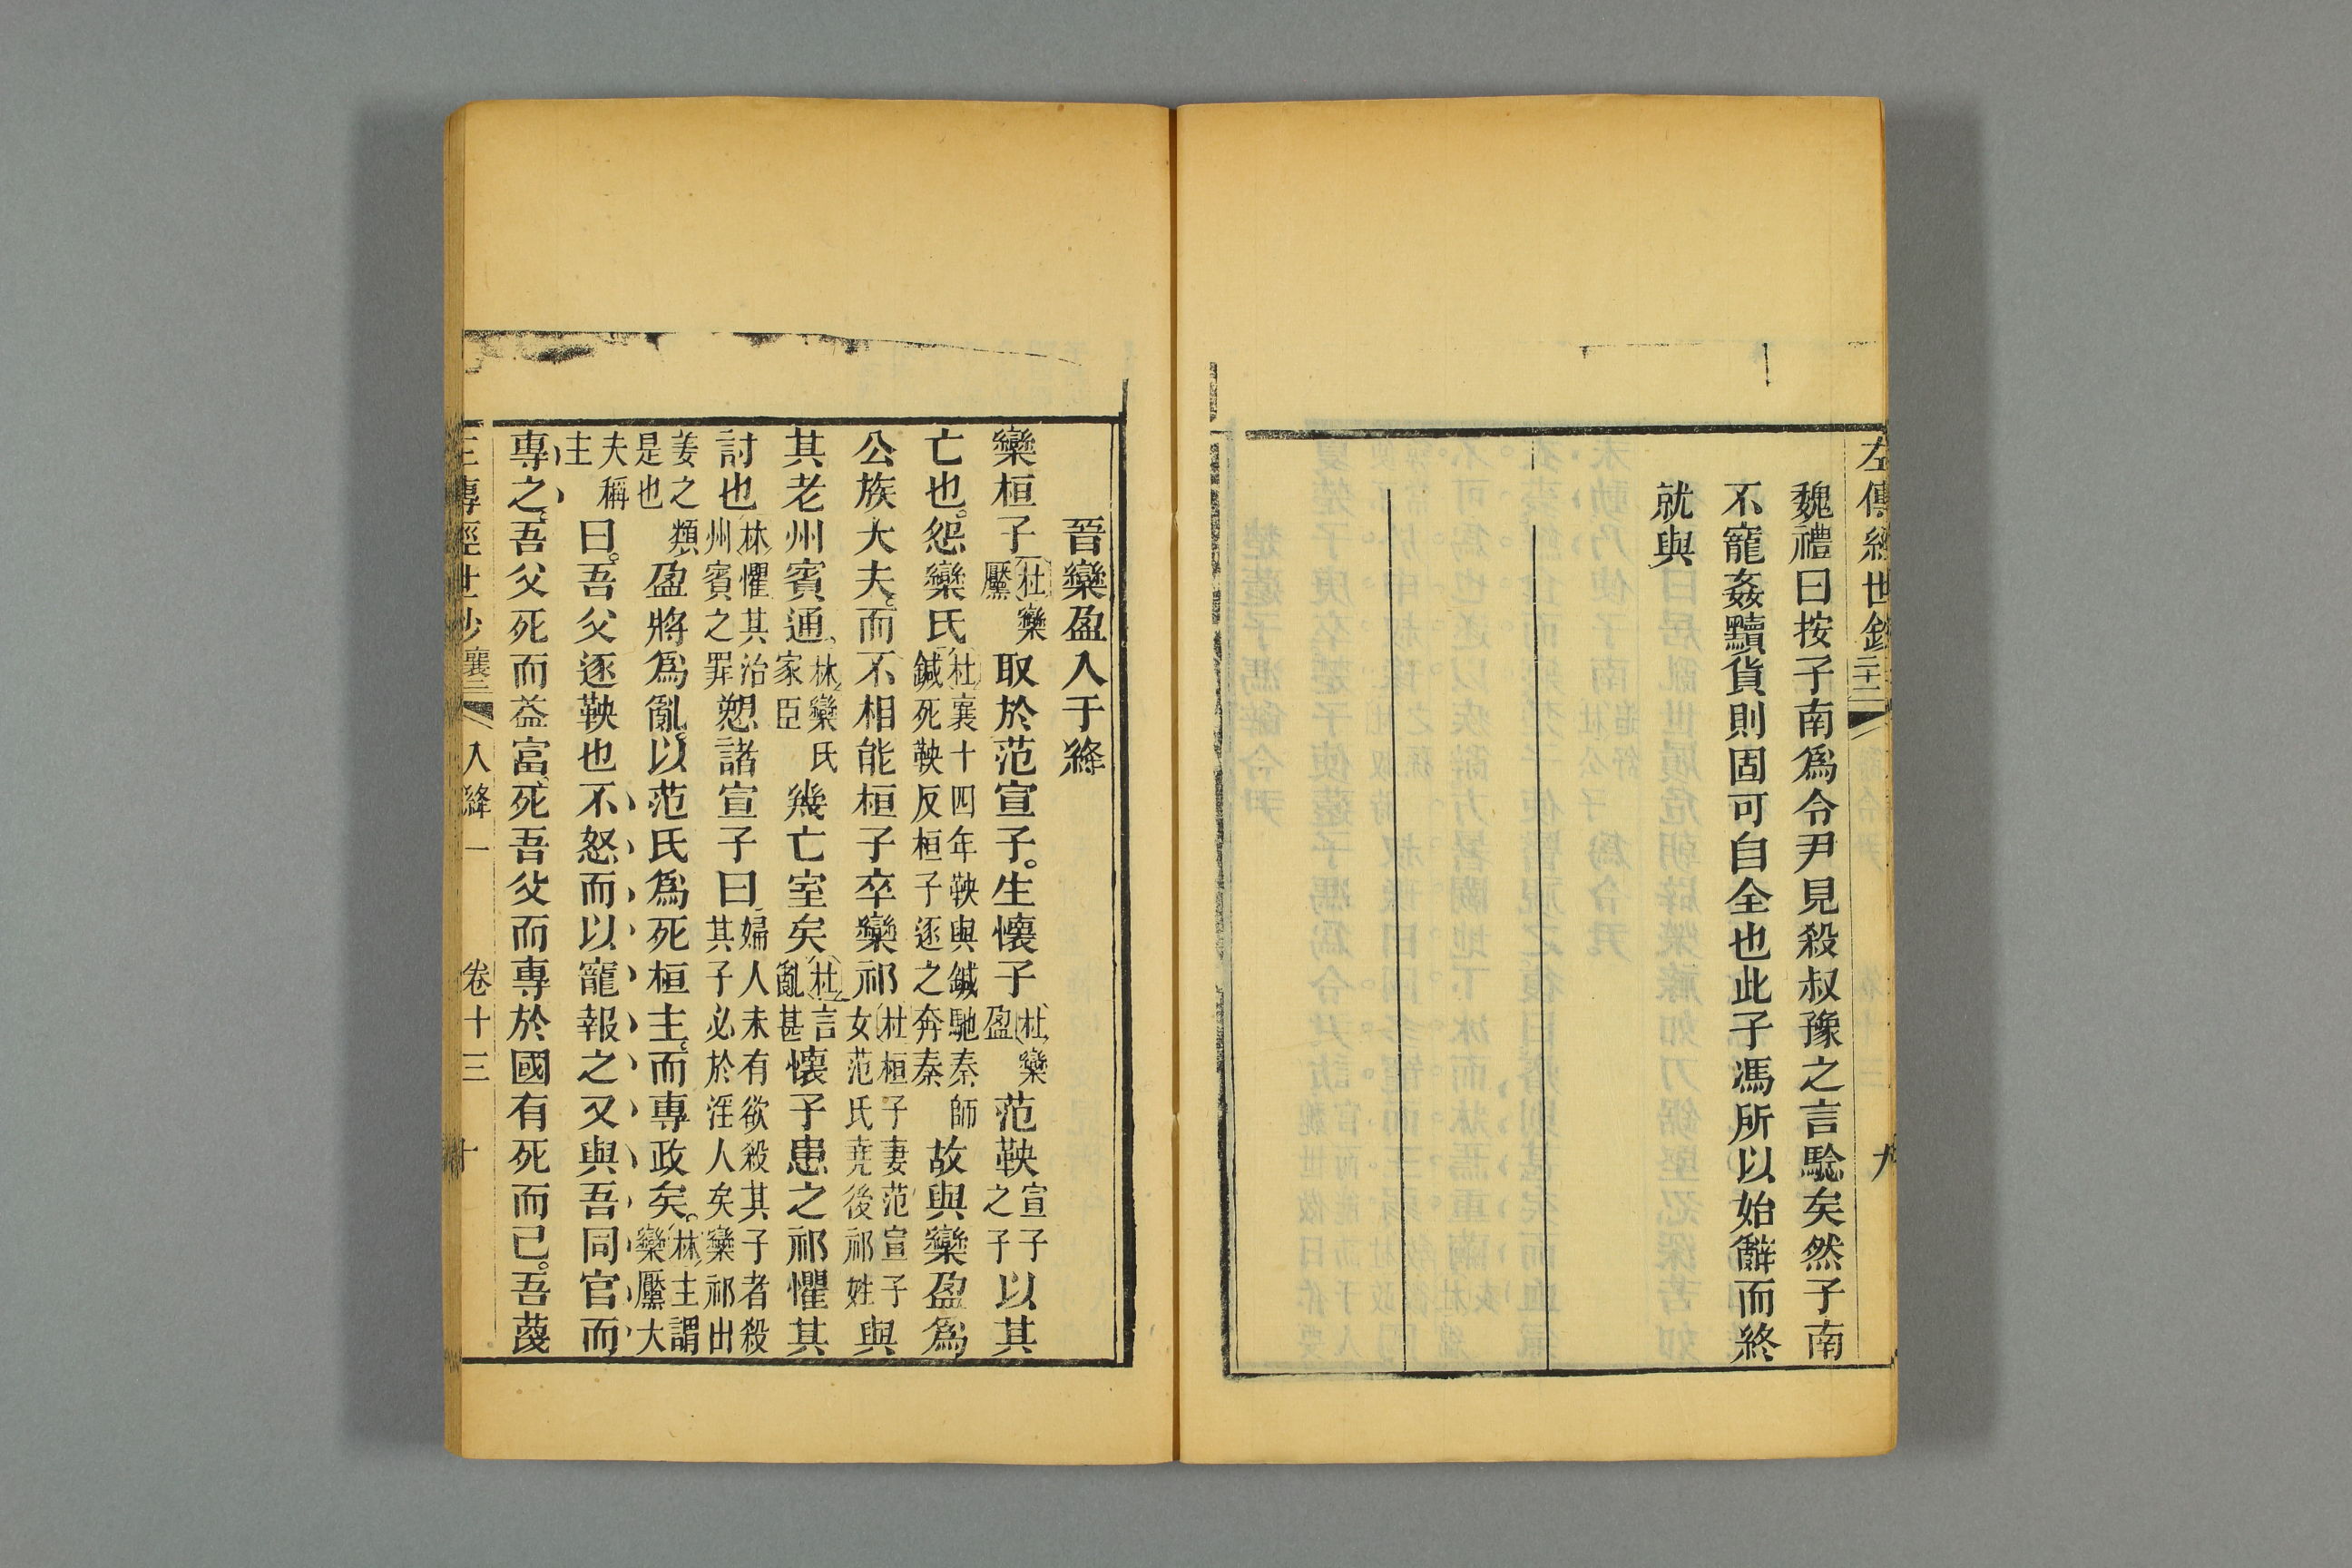 左傳經世鈔
九
魏禮曰按子南爲令尹見殺叔豫之言騐矣然子南
不寵姦黷貨則固可自全也此子馮所以始辭而終
就與
晉欒盈入于絳
欒桓子杜欒黶取於范宣子。生懷子杜欒盈范鞅宣子之子以其
亡也。怨欒氏杜襄十四年鞅與鍼馳秦師鍼死鞅反桓子逐之奔秦故與欒盈爲
公族大夫而不相能桓子卒欒祁杜桓子妻范宣子女范氏堯後祁姓與
其老州賓通林欒氏家臣幾亡室矣杜言亂甚懷子患之祁懼其
討也林懼其治州賓之罪愬諸宣子曰婦人未有欲殺其子者殺其子必於淫人矣欒祁出
姜之類是也盈將爲亂。以范氏爲死桓主。而專政矣。林主謂欒黶大
夫稱主曰。吾父逐鞅也不怒而以寵報之又與吾同官而
專之。吾父死而益富死吾父而專於國有死而已。吾蔑
左傳經世鈔 襄三 入絳 一 卷十三 十